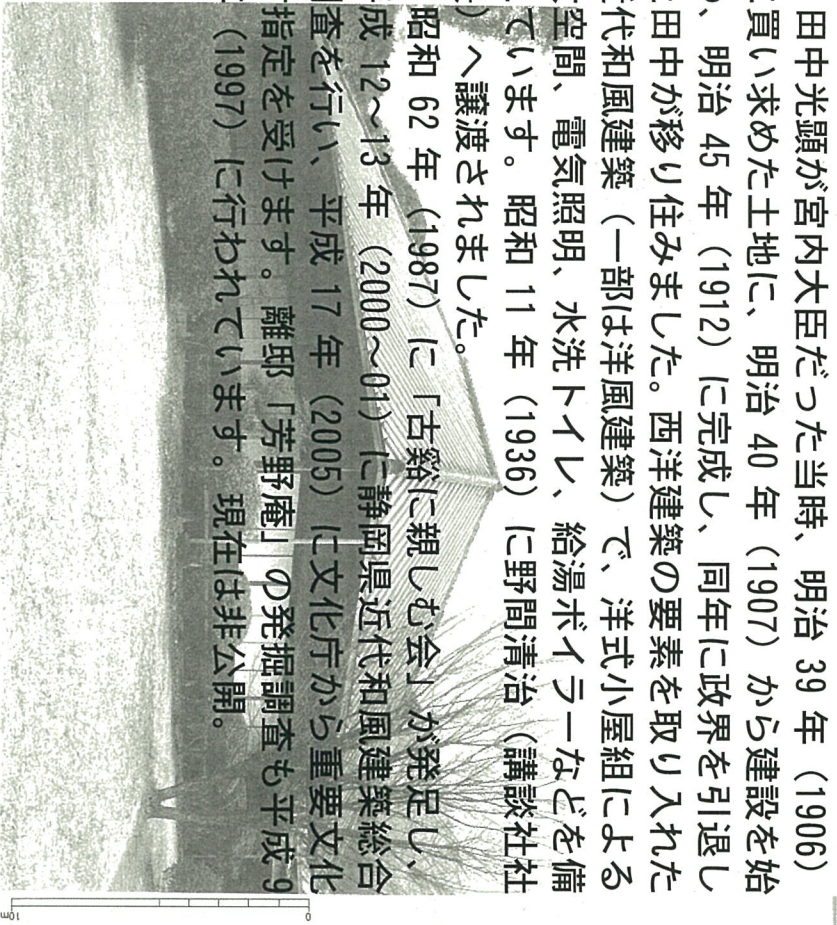 田中光顕が宮内大臣だった当時、明治 39 年（1906）
買い求めた土地に、明治 40 年（1907）から建設を始
、明治 45 年（1912）に完成し、同年に政界を引退し
田中が移り住みました。西洋建築の要素を取り入れた
代和風建築（一部は洋風建築）で、洋式小屋組による
空間、電気照明、水洗トイレ、給湯ボイラーなどを備
ています。昭和 11 年（1936）に野間清治（講談社社
）へ譲渡されました。
昭和 62 年（1987）に「古谿に親しむ会」が発足し、
成 12～13 年（2000～01）に静岡県近代和風建築総合
査を行い、平成 17 年（2005）に文化庁から重要文化
指定を受けます。離邸「芳野庵」の発掘調査も平成 9
（1997）に行われています。現在は非公開。
0
10m